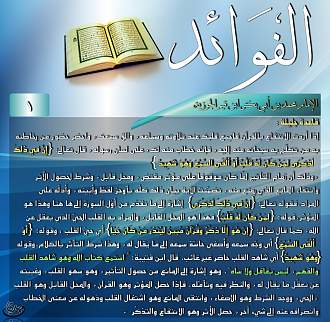 الفوائد
١
الإمام محمد بن أبي بكر ابن قيم الجوزية
قاعدة جليلة :
إذا أردت الانتفاع بالقرآن فاجمع قلبك عند تلاوته وسماعه، وألق سمعك، واحضر حضور من يخاطبه
به من تكلم به سبحانه منه إليه، فإنه خطاب منه لك على لسان رسوله، قال تعالى {إن في ذلك
لذكرى لمن كان له قلب أو ألقى السمع وهو شهيد}
وذلك أن تمام التأثير لما كان موقوفا على مؤثر مقتض، ومحل قابل، وشرط لحصول الأثر
وانتفاء المانع الذي يمنع منه، تضمنت الآية بيان ذلك كله بأوجز لفظ وأبينه، وأدله على
المراد فقوله تعالى {إن في ذلك لذكرى} إشارة إلى ما تقدم من أول السورة إلى ها هنا وهذا هو
المؤثر، قوله {لمن كان له قلب} فهذا هو المحل القابل، والمراد به القلب الحي الذي يعقل عن
الله، كما قال تعالى {إن هو إلا ذكر وقرآن مبين لينذر من كان حيا} أي حي القلب، وقوله: {أو
ألقى السمع} أي وجه سمعه وأصغى حاسة سمعه إلى ما يقال له، وهذا شرط التأثر بالكلام، وقوله
{وهو شهيد} أي شاهد القلب حاضر غير غائب، قال ابن قتيبة " استمع كتاب الله وهو شاهد القلب
والفهم، ليس بغافل ولا ساه "، وهو إشارة إلى المانع من حصول التأثير، وهو سهو القلب، وغيبته
عن تعقل ما يقال له، والنظر فيه وتأمله، فإذا حصل المؤثر وهو القرآن، والمحل القابل وهو القلب
الحي، ووجد الشرط وهو الاصغاء، وانتفى المانع وهو اشتغال القلب وذهوله عن معنى الخطاب
وانصرافه عنه إلى شيء آخر، حصل الأثر وهو الانتفاع والتذكر .